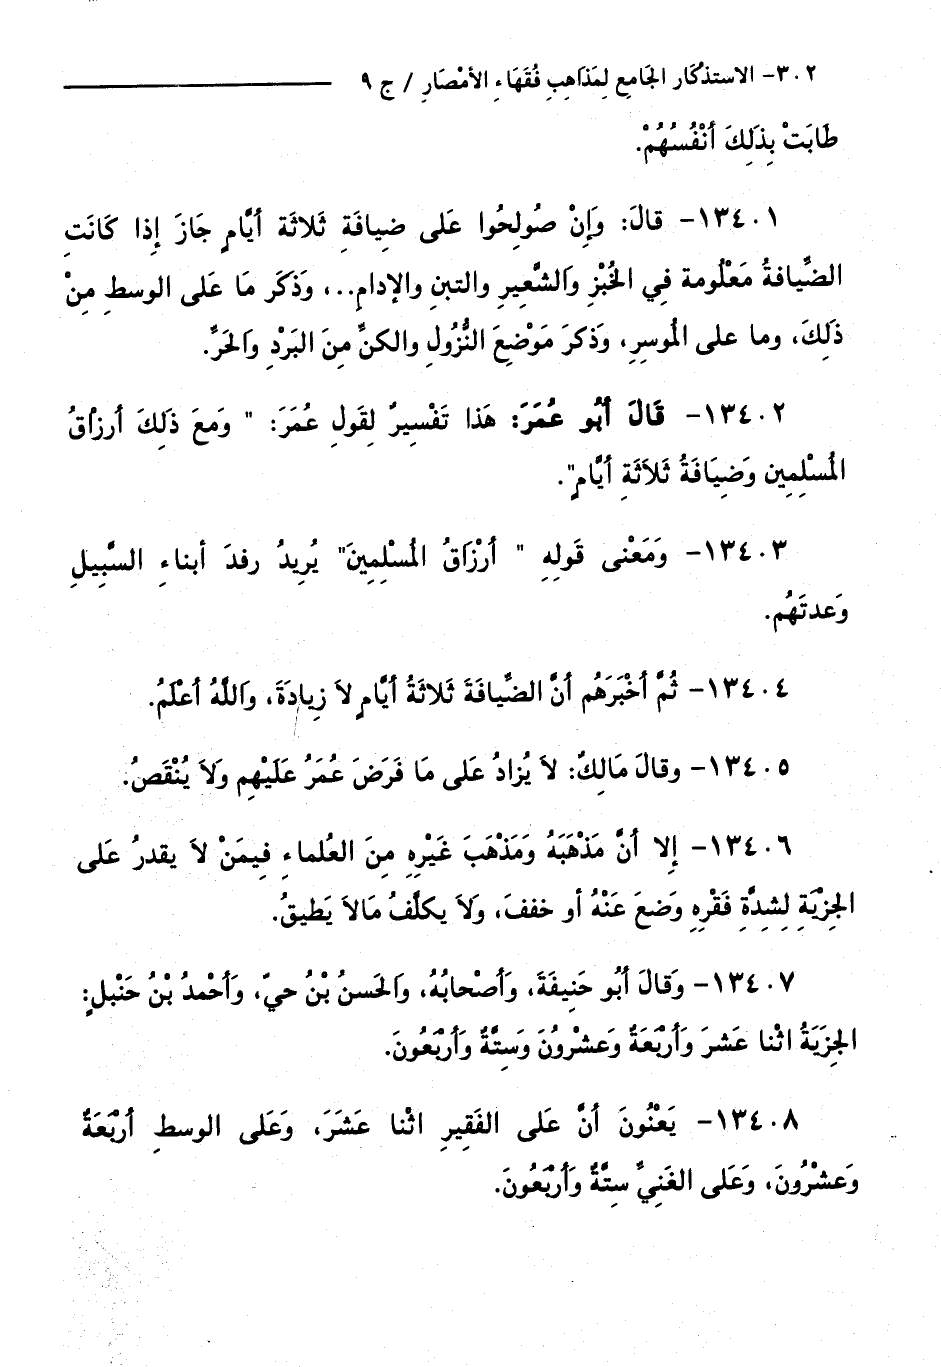 ٣٠٢- الاستذكار الجامع لِمَذَاهِبِ فُقَهَاءِ الأمْصَارِ / ج ٩
طَابَتْ بِذَلِكَ أنْفُسُهُمْ.
١٣٤٠١- قالَ: وَإِنْ صُولِحُوا عَلى ضِيافَةِ ثَلاثَة أيَّامٍ جَازَ إِذا كَانَتِ
الضِّيافةُ مَعْلُومة فِي الخُبْزِ وَالشَّعِيرِ والتبنِ والإدامِ..، وَذَكَر مَا عَلَى الوسطِ مِنْ
ذَلِكَ، وما على المُوسِرِ، وَذكرَ مَوْضِعَ النُّزُولِ والكنِّ مِنَ البَرْدِ وَالحَرِّ.
١٣٤٠٢- قَالَ أبُو عُمَرَ: هَذا تَفْسِيرٌ لِقَولِ عُمَرَ: " وَمَعَ ذَلِكَ أرزاقُ
المُسْلِمِين وَضِيَافَةُ ثَلاَثَةِ أيَّامٍ".
١٣٤٠٣- وَمَعْنى قَولِهِ " أرْزَاقُ المُسْلِمِينَ" يُرِيدُ رفدَ أبناءِ السَّبِيلِ
وَعدتَهُم.
١٣٤٠٤- ثُمَّ أخْبَرَهُم أنَّ الضِّيافَةَ ثَلاثَةُ أيَّامٍ لاَ زِيادَةَ، وَاللَّهُ أعْلَمُ.
١٣٤٠٥- وقالَ مَالِكٌ: لاَ يُزادُ عَلى مَا فَرَضَ عُمَرُ عَلَيْهِم ولاَ يُنْقَصُ.
١٣٤٠٦- إِلا أنَّ مَذْهَبَهُ وَمَذْهَبَ غَيْرِهِ مِنَ العُلماءِ فِيمَنْ لاَ يقدرُ عَلى
الجِزْيَةِ لِشِدَّةِ فَقْرِهِ وَضعَ عَنْهُ أو خففَ، ولاَ يكلَّفُ مَالاَ يَطيقُ.
١٣٤٠٧- وَقالَ أبُو حَنِيفَةَ، وَأصْحابُهُ، وَالحَسنُ بْنُ حيّ، وَأحْمدُ بْنُ حَنْبلٍ:
الجِزَيَةُ اثْنا عَشَرَ وَأرْبَعَةٌ وَعشْرُونَ وَسِتَّةٌ وَأرْبَعُونَ.
١٣٤٠٨- يَعْنُونَ أنَّ عَلى الفَقِيرِ اثْنا عَشَرَ، وَعَلى الوسطِ أرْبَعَةٌ
وَعشْرُونَ، وَعَلى الغَنِيِّ سِتَّةٌ وَأرْبَعُونَ.